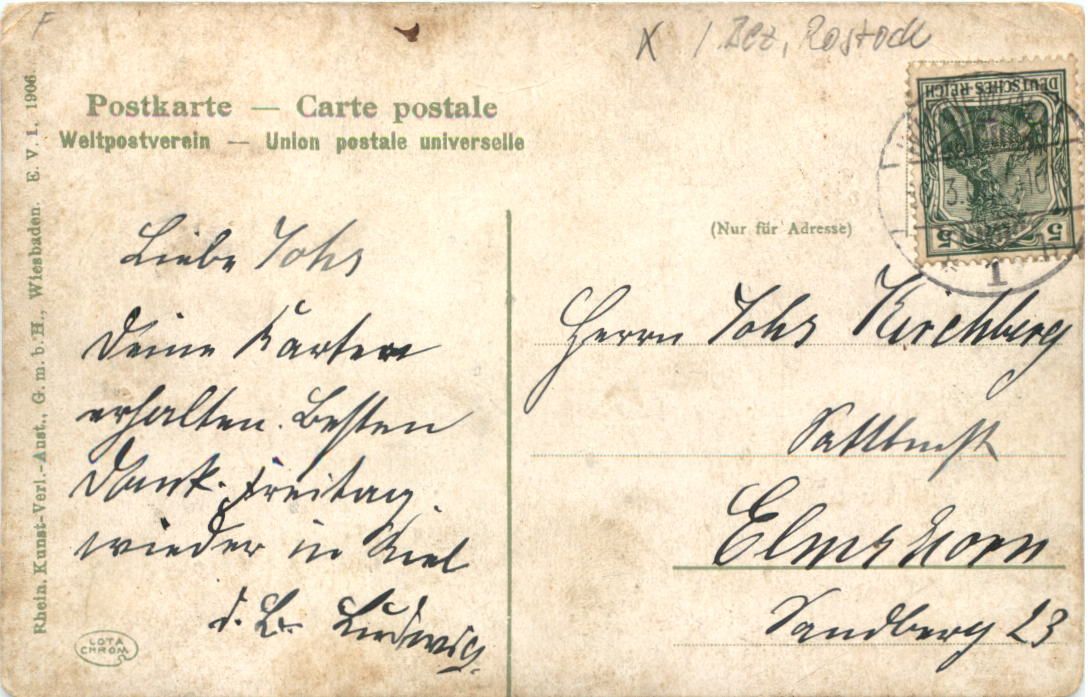 F
X / Bez. Rostock
Postkarte — Carte postale
Weltpostverein — Union postale universelle
DEUTSCHES REICH
5 5
1
(Nur für Adresse)
Liebe Johs
Deine Karten
erhalten. Besten
Dank. Freitag
wieder in Kiel
d. Br. Ludwig.
Herrn Johs Kirchberg
Elmshorn
Sandberg 23
Rhein. Kunst-Verl.-Anst., G. m. b. H., Wiesbaden. E. V. 1. 1906.
LOTA
CHROM